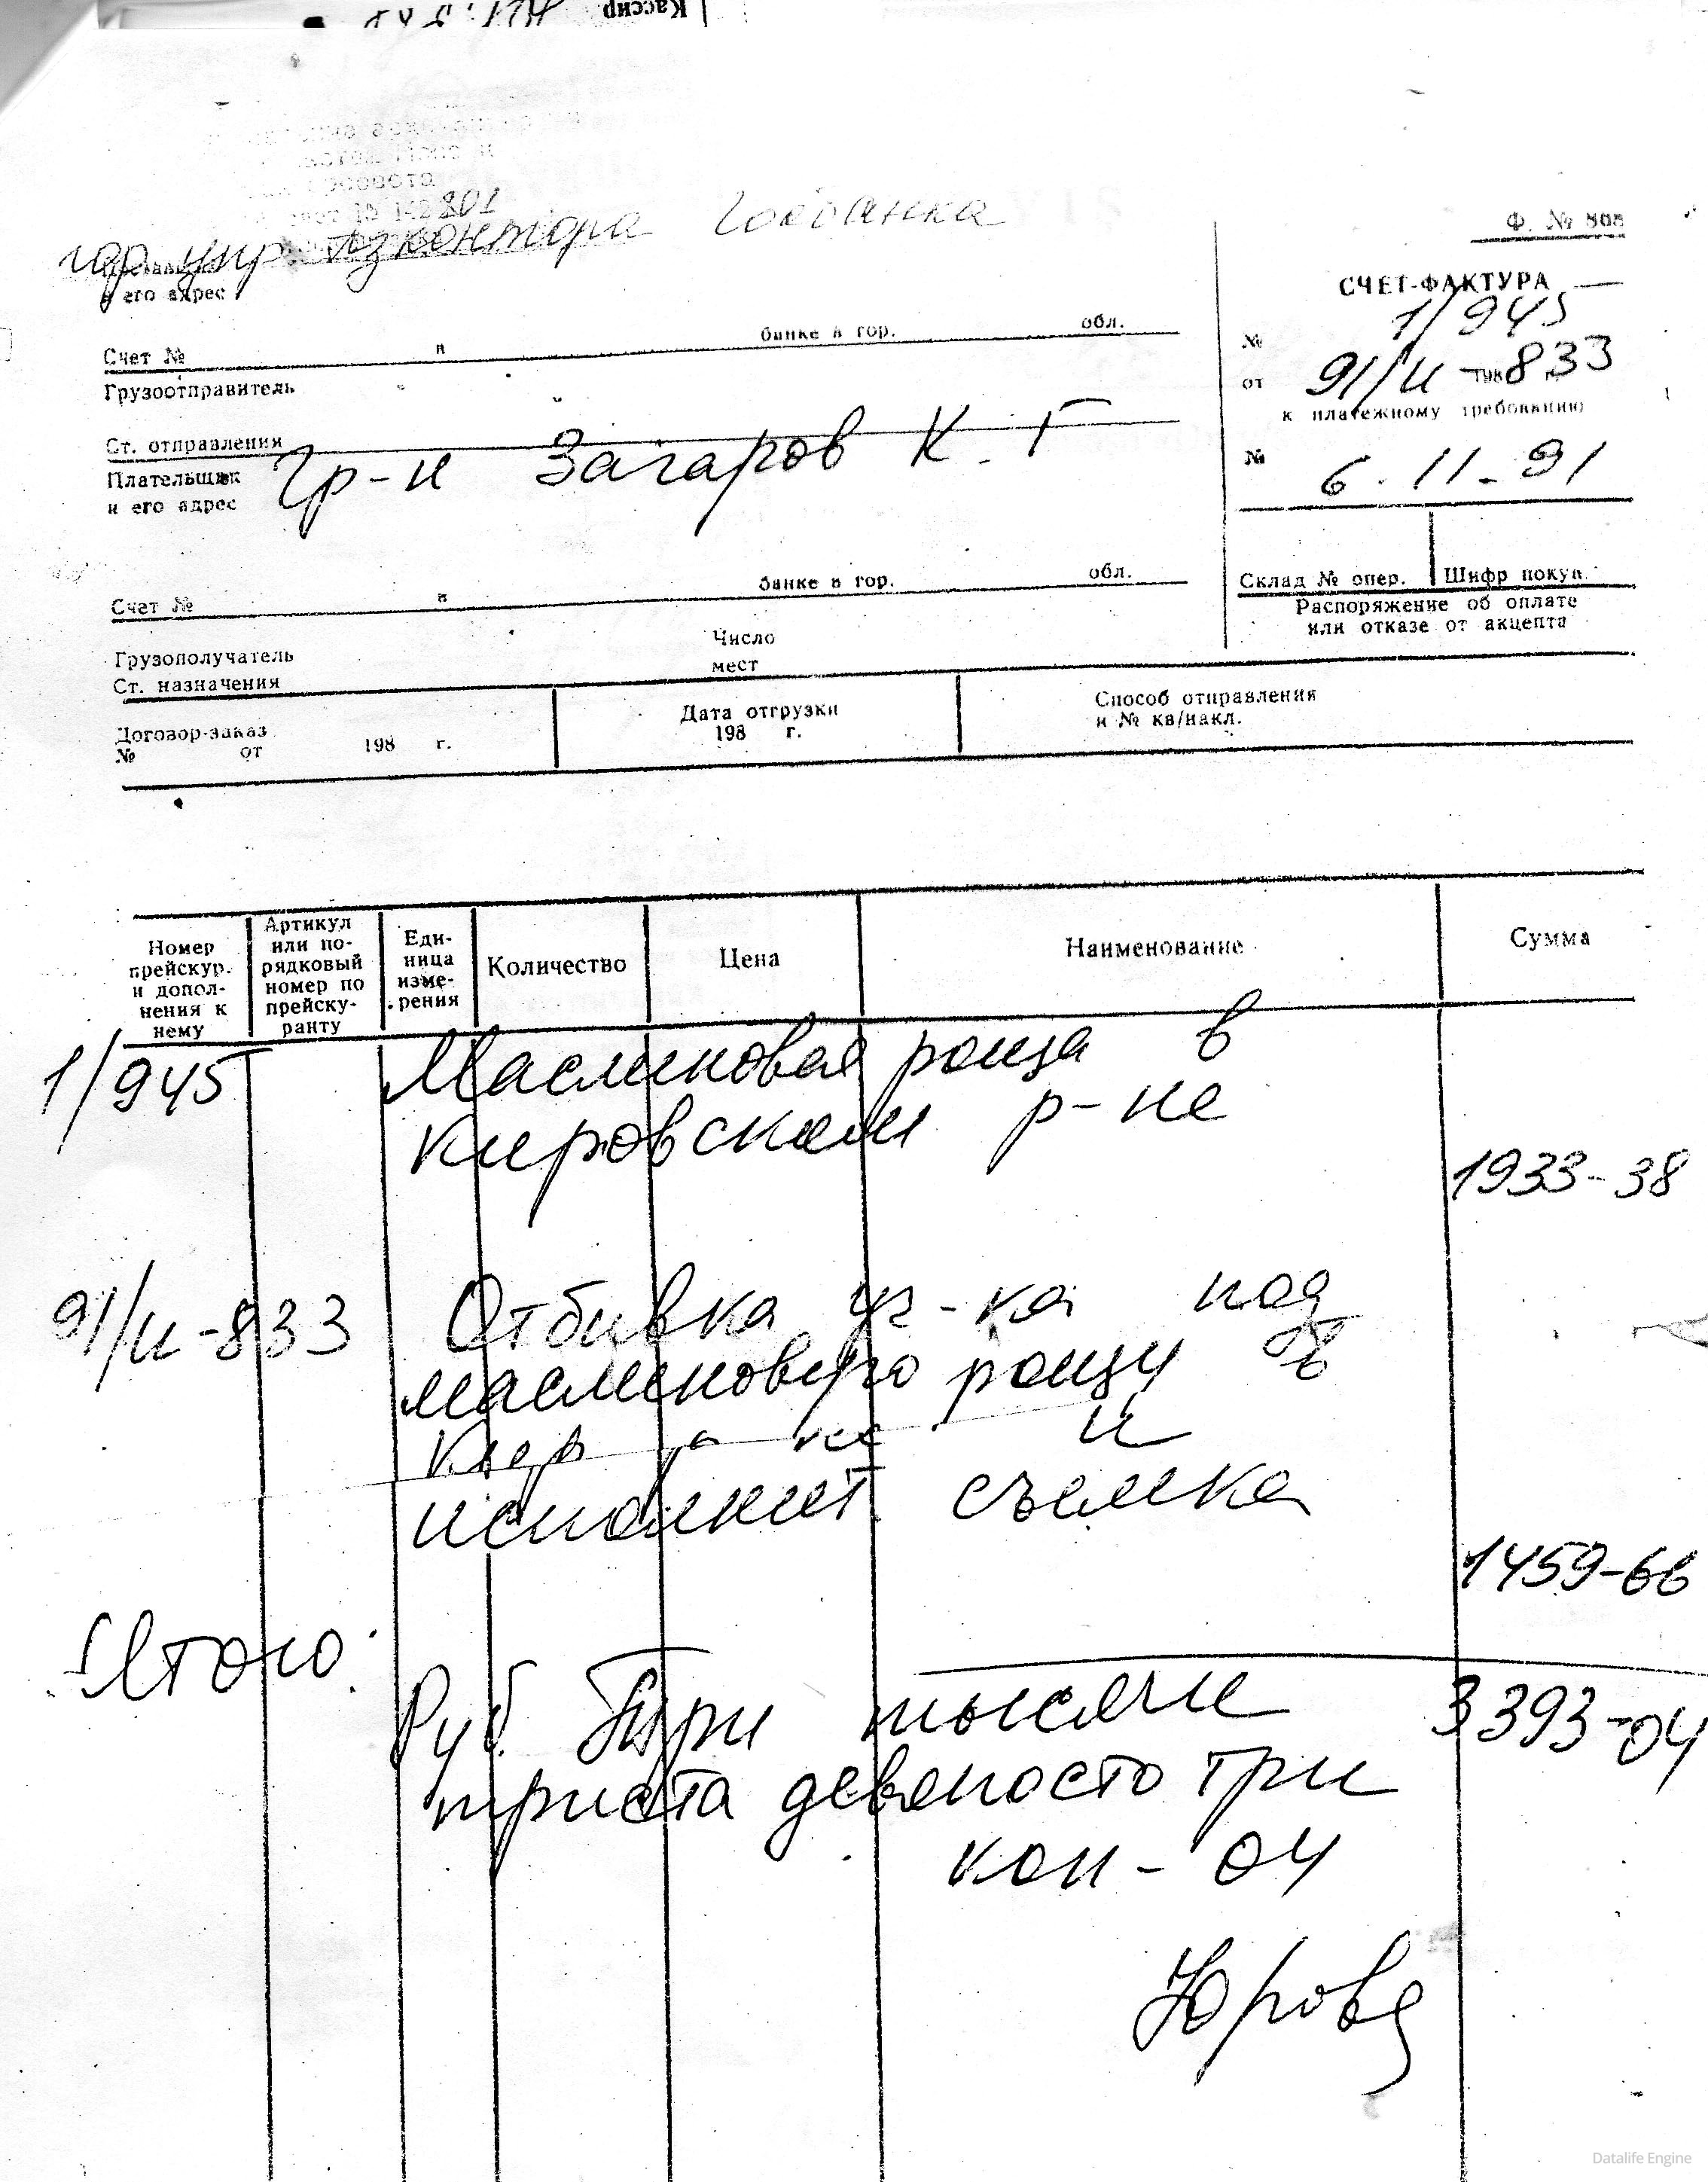 Кассир
801
гор упр Азконтора Госбанка
и его адрес
Ф. № 868
СЧЕТ-ФАКТУРА
№ 1/945
от 91/и - 198 833
к платежному требованию
№ 6.11-91
Счет № в банке в гор. обл.
Грузоотправитель
Ст. отправления
Плательщик Гр-н Загаров К. Г
и его адрес
Склад № опер. Шифр покуп.
Распоряжение об оплате
или отказе от акцепта
Счет № в банке в гор. обл.
Грузополучатель
Число
мест
Ст. назначения
Договор-заказ
№ от 198 г.
Дата отгрузки
198 г.
Способ отправления
и № кв/накл.
Номер
прейскур.
и допол-
нения к
нему
Артикул
или по-
рядковый
номер по
прейску-
ранту
Еди-
ница
изме-
рения
Количество
Цена
Наименование
Сумма
1/945 Маслиновая роща в
Кировском р-не
1933-38
91/и-833 Отбивка уч-ка под
маслиновую рощу в
Кир р-не и
исполнит. съемка
1459-66
Итого:
Руб. Три тысячи 3393-04
триста девяносто три
коп - 04
Юрова
Datalife Engine